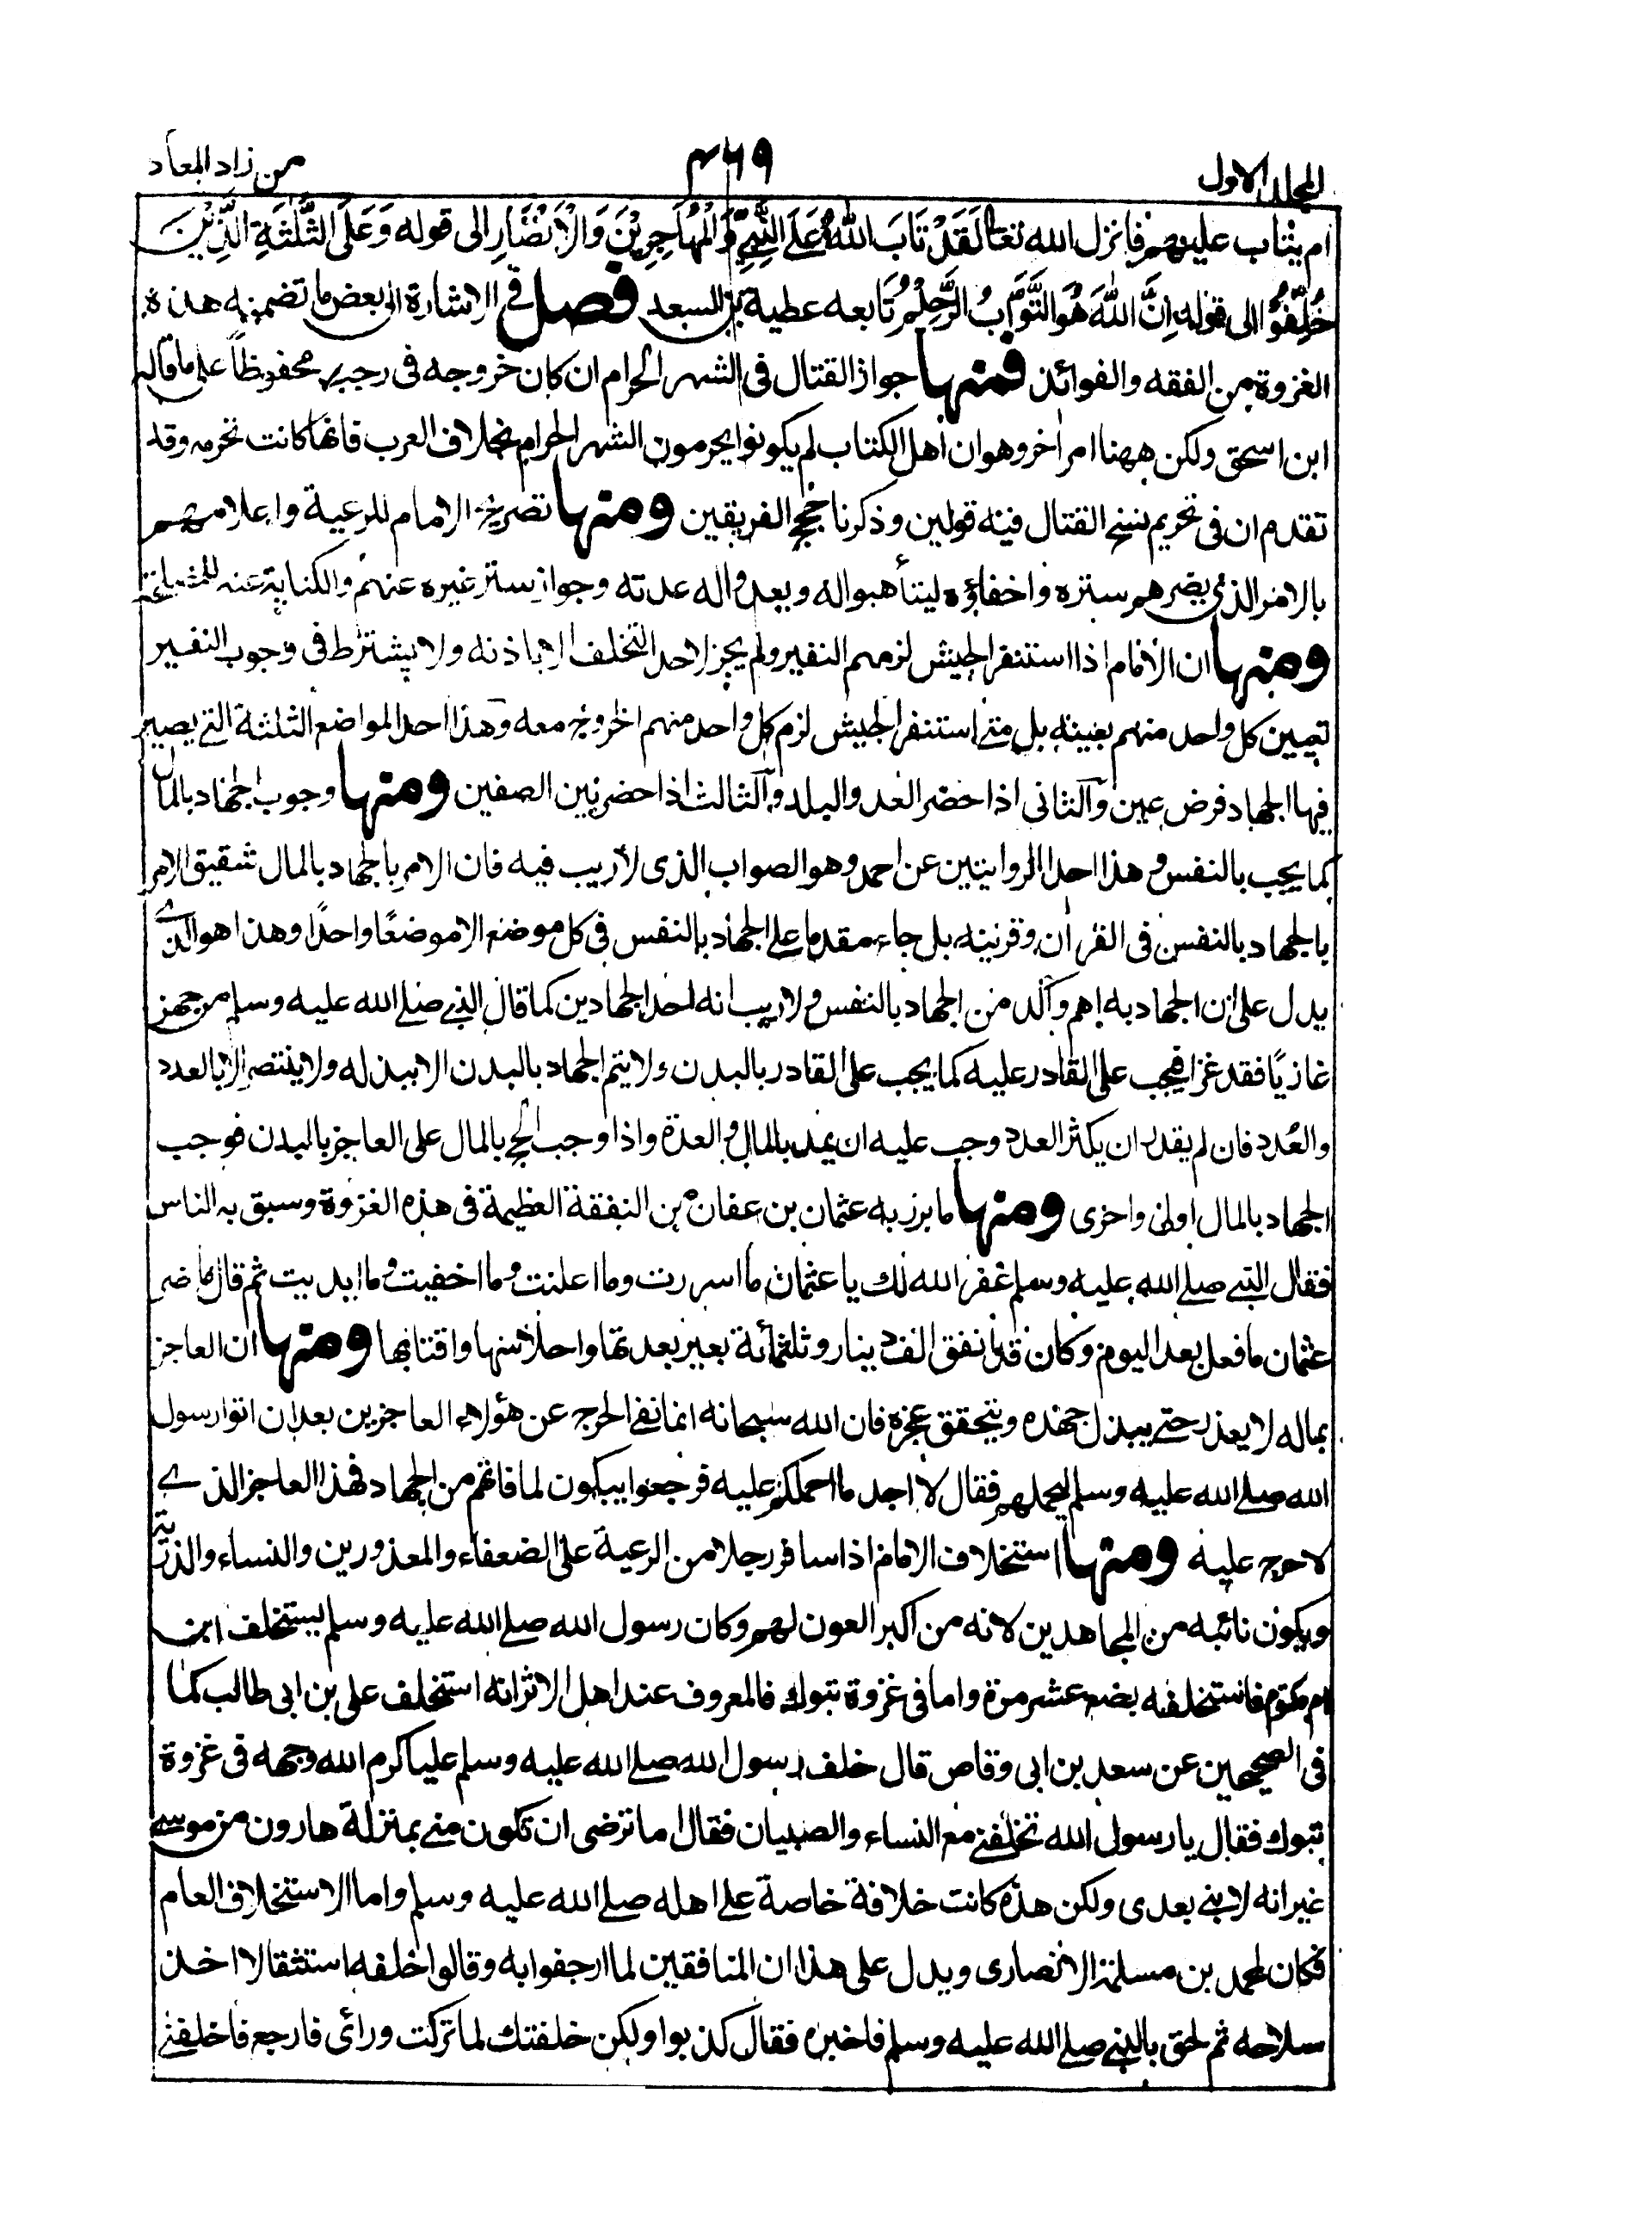 المجلد الاول
٤٦٩
من زاد المعاد
ام يتاب عليهم فانزل الله تعالى لَقَدْ تَابَ اللّٰهُ عَلَى النَّبِيِّ وَالْمُهَاجِرِيْنَ وَالْاَنْصَارِ الى قوله وَعَلَى الثَّلٰثَةِ الَّذِيْنَ
خُلِّفُوْا الى قوله اِنَّ اللّٰهَ هُوَ التَّوَّابُ الرَّحِيْمُ تابعه عطية بن السعد فصل في الاشارة الى بعض ما تضمنته هذه
الغزوة من الفقه والفوائد فمنها جواز القتال في الشهر الحرام ان كان خروجه في رجب محفوظاً على ما قاله
ابن اسحق ولكن ههنا امر اخر وهو ان اهل الكتاب لم يكونوا يحرمون الشهر الحرام بخلاف العرب فانها كانت تحرمه وقد
تقدم ان في تحريم نسخ القتال فيه قولين وذكرنا حجج الفريقين ومنها تصريح الامام للرعية واعلامهم
بالامر الذي يضرهم ستره واخفاؤه ليتأهبوا له ويعدوا له عدته وجواز ستر غيره عنهم والكناية عنه للمصلحة
ومنها ان الامام اذا استنفر الجيش لزمهم النفير ولم يجز لاحد التخلف الا باذنه ولا يشترط في وجوب النفير
تعيين كل واحد منهم بعينه بل متى استنفر الجيش لزم كل واحد منهم الخروج معه وهذا احد المواضع الثلثة التي يصير
فيها الجهاد فرض عين والثاني اذا حضر العدو البلد والثالث اذا حضر بين الصفين ومنها وجوب الجهاد بالمال
كما يجب بالنفس وهذا احدا الروايتين عن احمد وهو الصواب الذى لاريب فيه فان الامر بالجهاد بالمال شقيق الامر
بالجهاد بالنفس في القراٰن وقرينه بل جاء مقدما على الجهاد بالنفس في كل موضع الا موضعًا واحدًا وهذا هو الذي
يدل على ان الجهاد به اهم وآكد من الجهاد بالنفس ولا ريب انه احد الجهادين كما قال النبي صلى الله عليه وسلم من جهز
غازيًا فقد غزا فيجب على القادر عليه كما يجب على القادر بالبدن ولا يتم الجهاد بالبدن الا ببذله ولا ينتصر الا بالعدد
والعُدد فان لم يقدر ان يكثر العدد وجب عليه ان يمد بالمال والعدة واذا وجب الحج بالمال على العاجز بالبدن فوجب
الجهاد بالمال اولى واحرى ومنها ما برز به عثمان بن عفان من النفقة العظيمة في هذه الغزوة وسبق به الناس
فقال النبي صلى الله عليه وسلم غفر الله لك يا عثمان ما اسررت وما اعلنت وما اخفيت وما ابديت ثم قال ما ضر
عثمان ما فعل بعد اليوم وكان قد انفق الف دينار وثلثمائة بعير بعدتها واحلاسها واقتابها ومنها ان العاجز
بماله لا يعذر حتى يبذل جهده ويتحقق عجزه فان الله سبحانه انما نفى الحرج عن هؤلاء العاجزين بعد ان اتوا رسول
الله صلى الله عليه وسلم ليحملهم فقال لا اجد ما احملكم عليه فرجعوا يبكون لما فاتهم من الجهاد فهذا العاجز الذي
لا حرج عليه ومنها استخلاف الامام اذا سافر رجلا من الرعية على الضعفاء والمعذورين والنساء والذرية
ويكون نائبه من المجاهدين لانه من اكبر العون لهم وكان رسول الله صلى الله عليه وسلم يستخلف ابن
ام مكتوم فاستخلفه بضع عشر مرة واما في غزوة تبوك فالمعروف عند اهل الاثر انه استخلف على بن ابى طالب كما
في الصحيحين عن سعد بن ابى وقاص قال خلف رسول الله صلى الله عليه وسلم عليا كرم الله وجهه في غزوة
تبوك فقال يا رسول الله تخلفني مع النساء والصبيان فقال اما ترضى ان تكون مني بمنزلة هارون من موسى
غير انه لا نبي بعدى ولكن هذه كانت خلافة خاصة على اهله صلى الله عليه وسلم واما الاستخلاف العام
فكان لمحمد بن مسلمة الانصارى ويدل على هذا ان المنافقين لما ارجفوا به وقالوا خلفه استثقالا اخذ
سلاحه ثم لحق بالنبي صلى الله عليه وسلم فاخبره فقال كذبوا ولكن خلفتك لما تركت ورائى فارجع فاخلفني